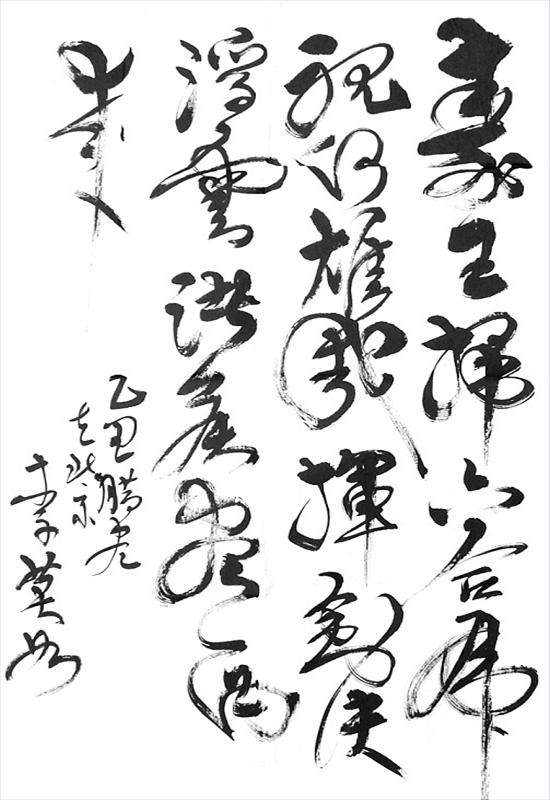 秦王掃六合虎
視何雄哉揮劍决
浮雲諸侯盡西
來
乙丑腊
李莫